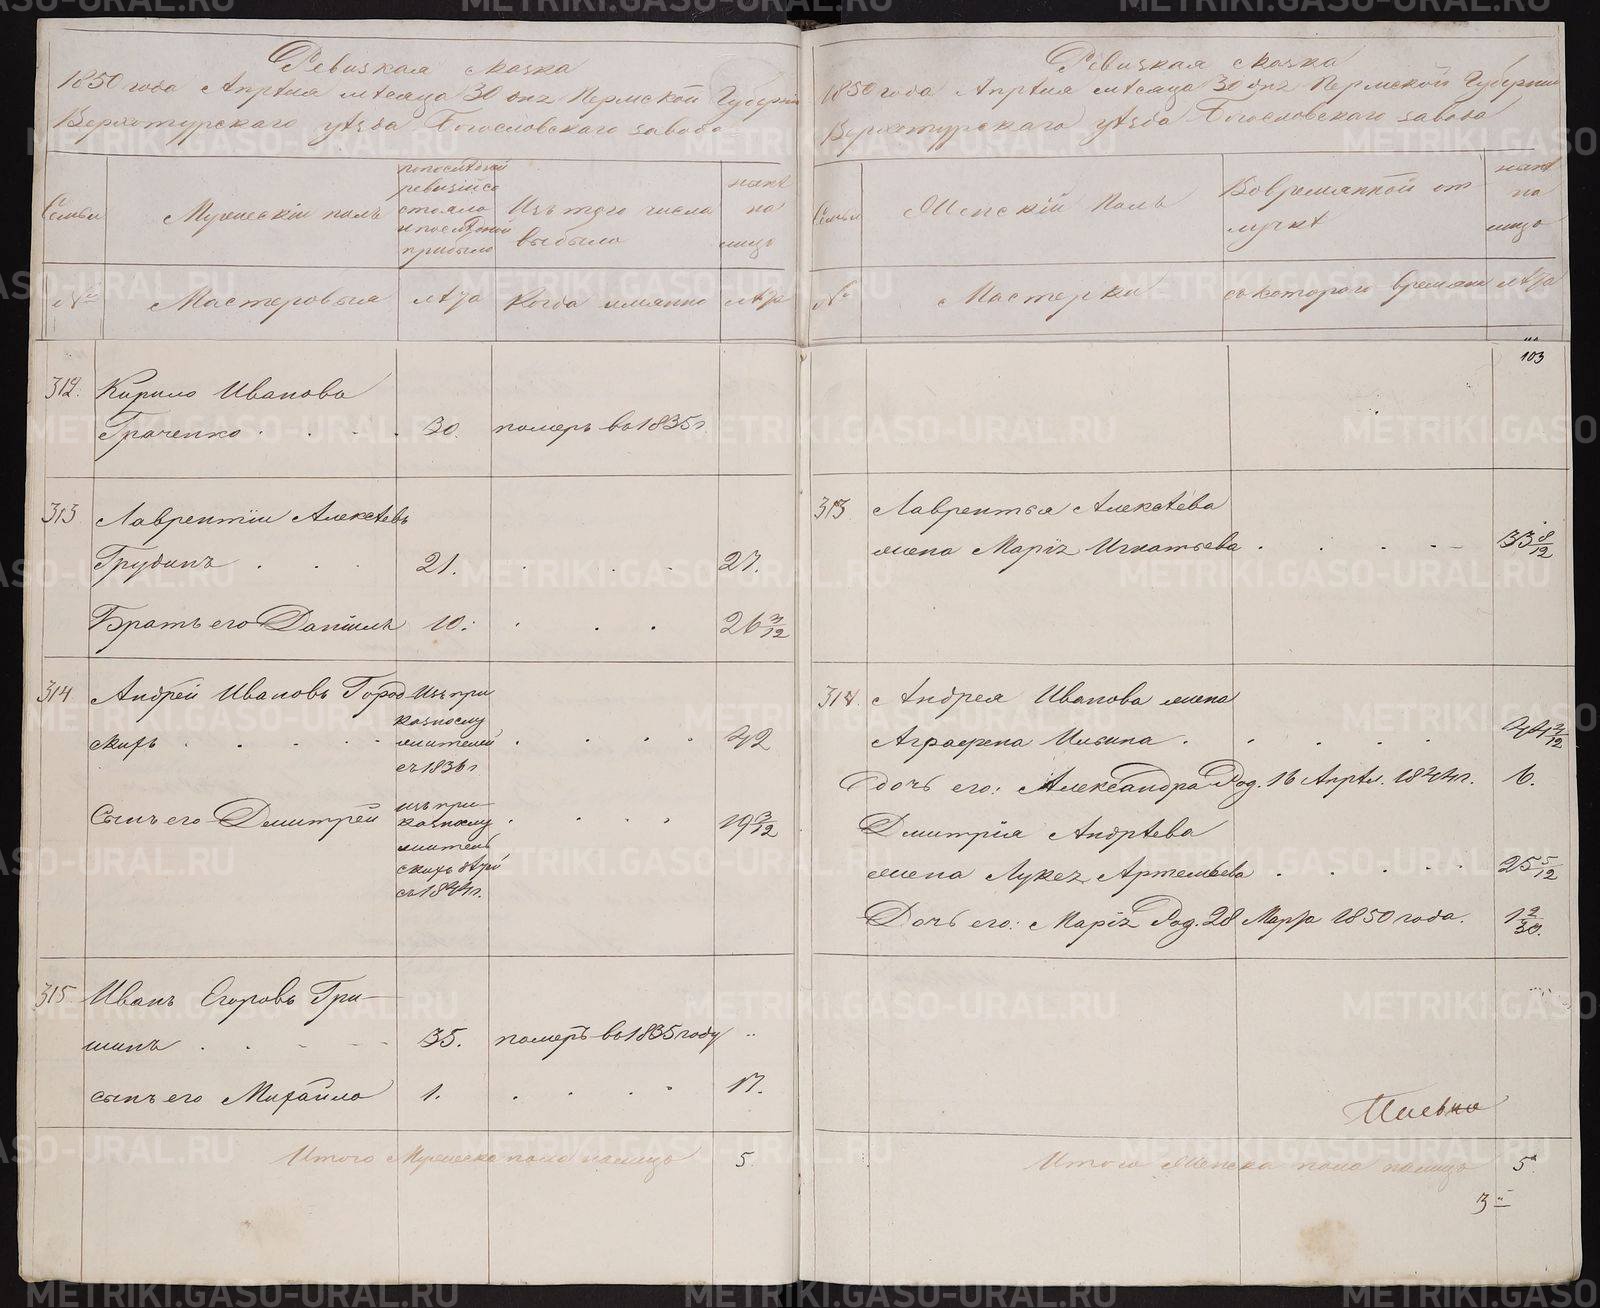 Ревизкая сказка
1850 года Апрѣля мѣсяца 30 дня Пермской Губерніи
Верхотурскаго уѣзда Богословскаго завода
Семьи
Мужескій полъ
по последней
ревизіи со
стояло
и после оной
прибыло
Изъ того числа
выбыло
ныне
на
лицо
№
Мастеровыя
лѣта
Когда имянно
лѣта
312.
Кирило Иванова
Граченко
30.
померъ въ 1835 г.
313
Лаврентіи Алексѣевъ
Грудинъ
21.
27.
Братъ его Данііл
10.
26 3/12
314
Андрей Ивановъ Город
скихъ
Изъ при
казному
жителей
съ 1836 г.
42
Сынъ его Дмитрей
изъ при
казному
житель
скихъ дѣтей
съ 1844 г.
19 6/12
315
Иванъ Егоровъ Гри
шинъ
35.
померъ въ 1835 году
сынъ его Михайло
1.
17.
Итого Мужеска пола налицо
5
Ревизкая сказка
1850 года Апрѣля мѣсяца 30 дня Пермской Губерніи
Верхотурскаго уѣзда Богословскаго завода
Семьи
Женскій полъ
Во временной от
лучкѣ
ныне
на
лицо
№
Мастерки
съ котораго времяни
лѣта
103
313
Лаврентья Алексѣева
жена Марія Игнатьева
33 8/12
314.
Андрея Иванова жена
Аграфена Ильина
44 2/12
дочь его: Александра Род. 16 Апрѣл. 1844 г.
6.
Дмитрія Андрѣева
жена Лукея Артемьева
25 5/12
Дочь его: Марія Род. 28 Марта 1850 года.
1 2/30.
Итого Женска пола налицо
5
3
METRIKI.GASO-URAL.RU